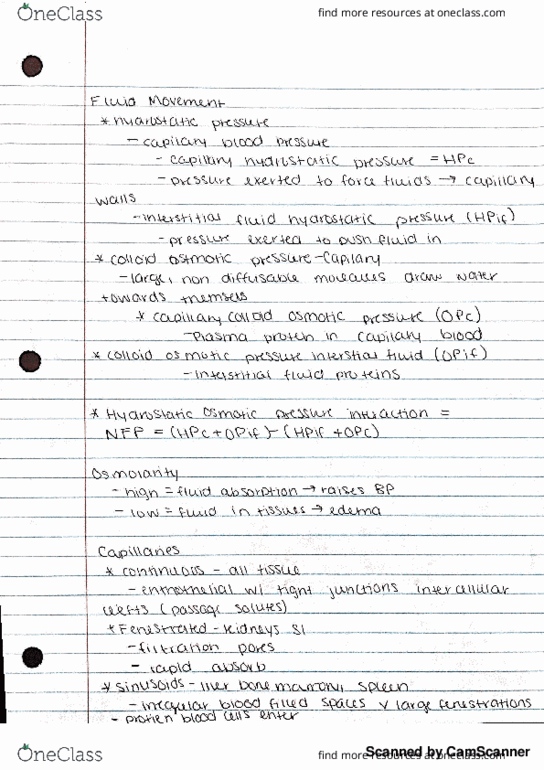 OneClass
find more resources at oneclass.com
Fluid Movement
* hydrostatic pressure
- capilary blood pressure
- capilary hydrostatic pressure = HPc
- pressure exerted to force fluids → capillary
walls
- interstitial fluid hydrostatic pressure (HPif)
- pressure exerted to push fluid in
* colloid osmotic pressure - Capilary
- large, non diffusable molecules draw water
towards themsels
* capillary colloid osmotic pressure (OPc)
- Plasma protein in capilary blood
* colloid osmotic pressure interstial fluid (OPif)
- Interstitial fluid proteins
* Hydrostatic Osmotic pressure interaction =
NFP = (HPc + OPif) - (HPif + OPc)
Osmolarity
- high = fluid absorption → raises BP
- low = fluid in tissues → edema
Capillaries
* continuous - all tissue
- w/ tight junctions intercellular
clefts (passage solutes)
* Fenestrated - kidneys SI
- filtration pores
- rapid absorb
* sinusoids - liver bone marrow, spleen
- irregular blood filled spaces large fenestrations
- protien blood cells enter
OneClass
find more resources at oneclass.com
Scanned by CamScanner